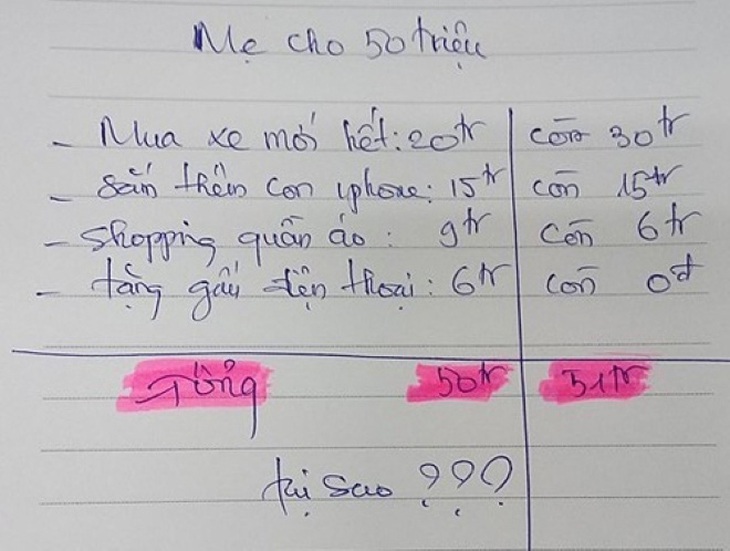 Mẹ cho 50 triệu
- Mua xe mới hết: 20tr còn 30tr
- sắm thêm con iphone: 15tr còn 15tr
- shopping quần áo: 9tr còn 6tr
- tặng gấu điện thoại: 6tr còn 0đ
Tổng 50tr 51tr
tại sao ???